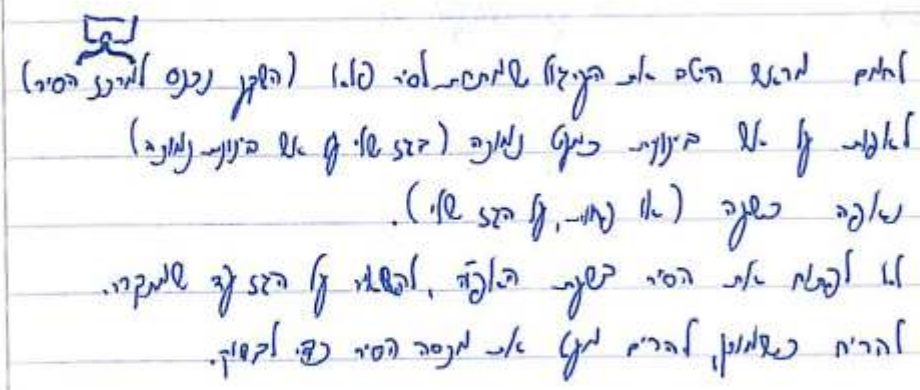 לחמם מראש היטב את העיגול שמתחת לסיר פלא (השקע נכנס למרכז הסיר)
לאפות על אש בינונית כמעט נמוכה (בגז שלי על אש בינונית נמוכה)
נאפה כשעה (או פחות, על הגז שלי).
לא לפתוח את הסיר בשעת האפיה, להשאיר על הגז עד שמתקרר.
להריח כשמוכן, להרים מעט את מכסה הסיר כדי לבדוק.